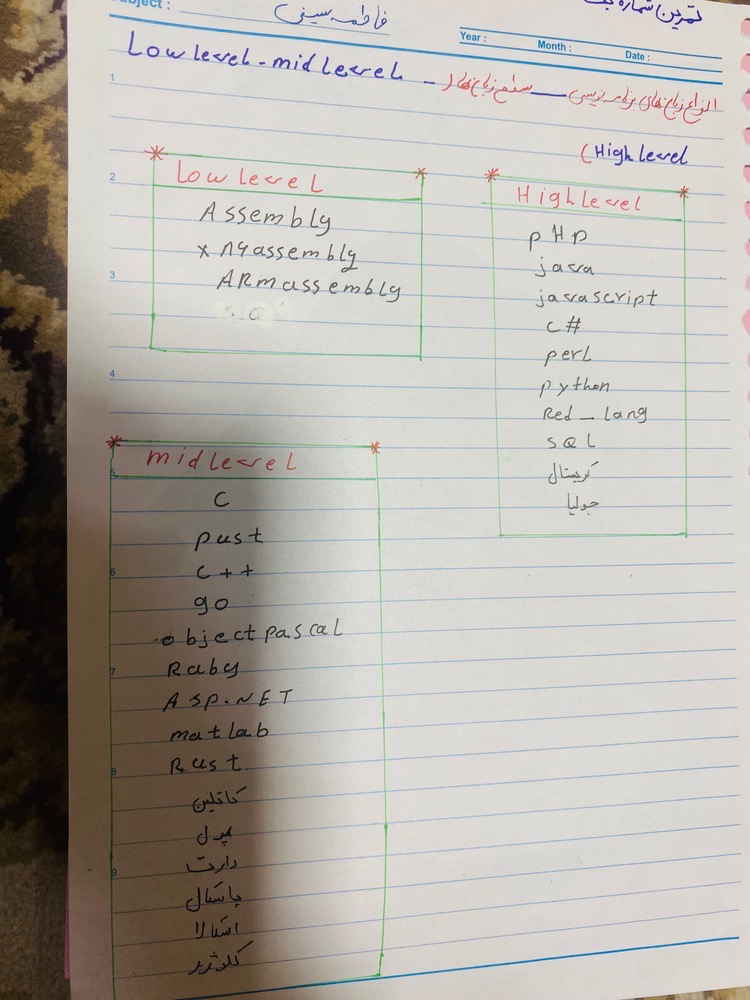 تمرین شماره یک
Subject :
فاطمه سینی
Year :
Month :
Date :
انواع زبان های برنامه نویسی — سطح زبان ها ( Low level - mid level -
High level )
1
2
3
4
5
6
7
8
9
Low level
Assembly
ARmassembly
High level
pHp
java
javascript
C#
perl
python
Red_lang
SQL
کریستال
جولیا
mid level
C
pust
C++
go
object pascal
Raby
ASP.NET
matlab
Rust
کاتلین
پرل
دارت
پاسکال
اسکالا
کلوژیر